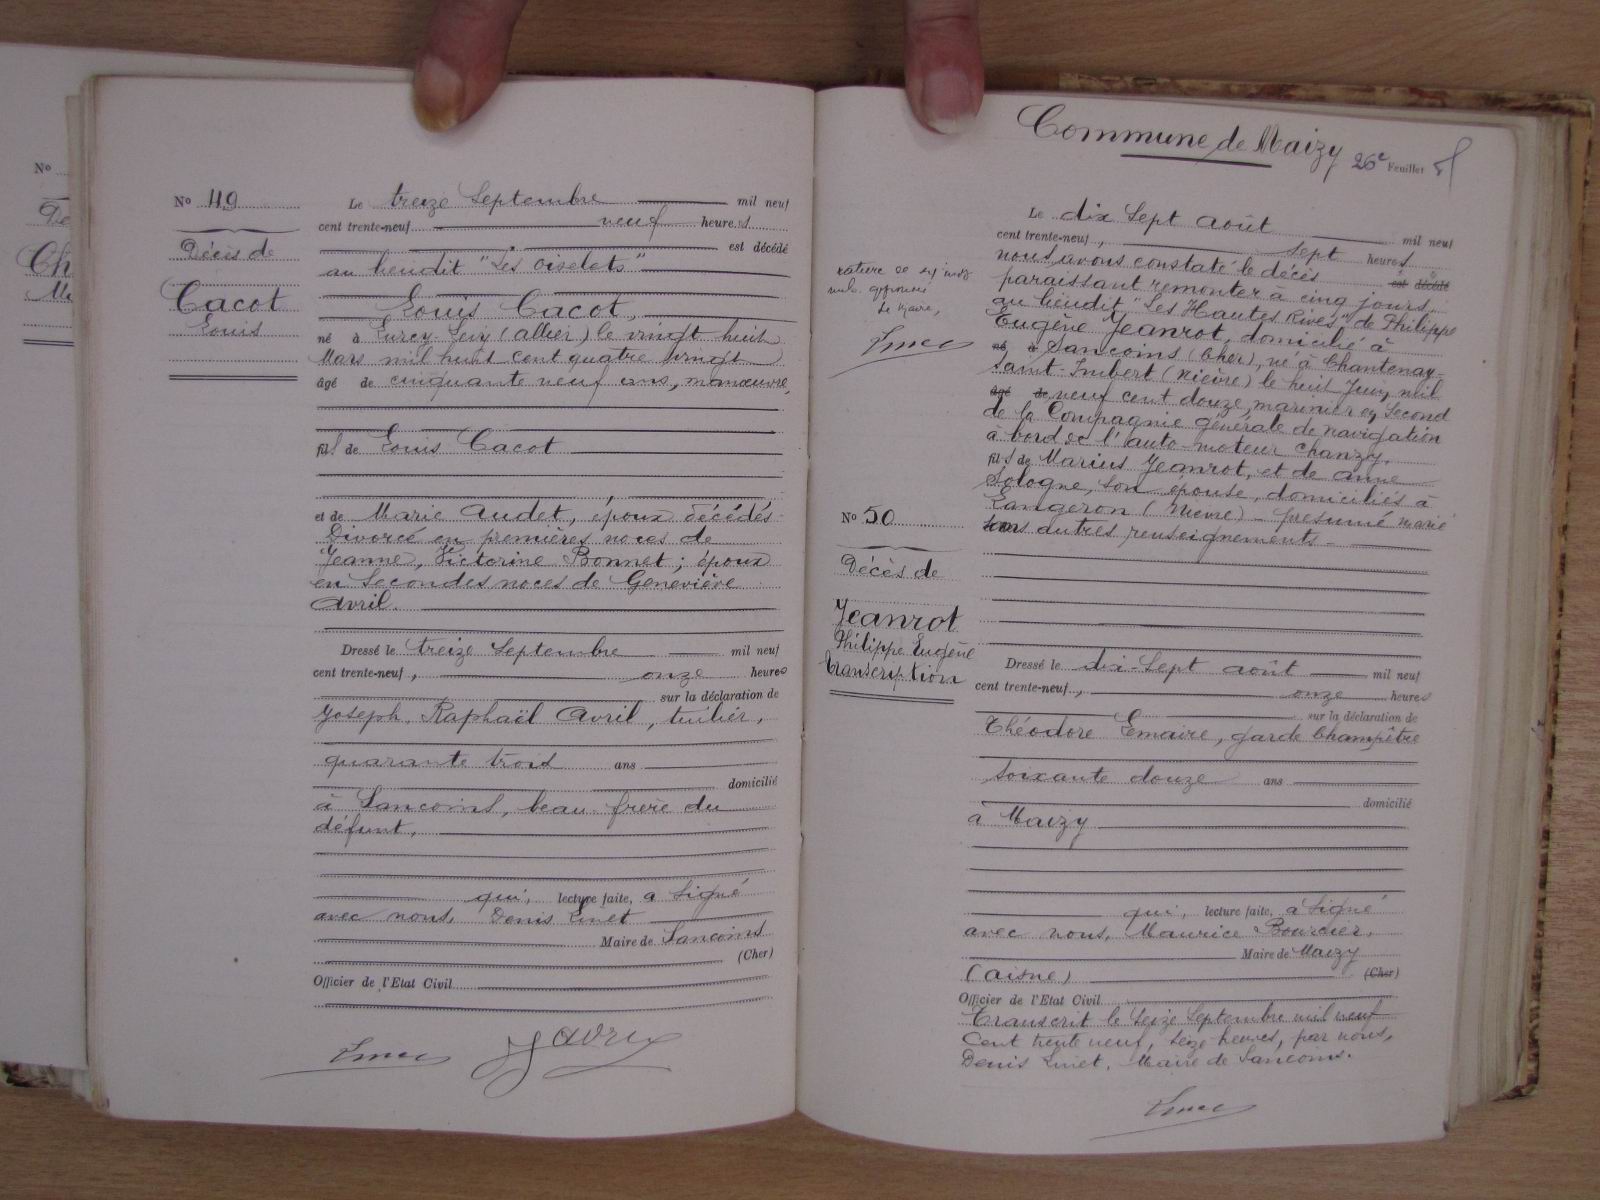 No
De
Ch
No 49
Décès de
Cacot
Louis
Le treize Septembre mil neuf
cent trente-neuf neuf heures
est décédé
au lieudit "Les Oiselets"
Louis Cacot,
né à Lurcy Levy (Allier) le vingt huit
Mars mil huit cent quatre vingt
âgé de cinquante neuf ans, manœuvre,
fils de Louis Cacot
et de Marie Audet, époux décédés
Divorcé en premières noces de
Jeanne, Victorine Bonnet; époux
en secondes noces de Geneviève
Avril.
Dressé le treize Septembre mil neuf
cent trente-neuf, onze heures
sur la déclaration de
Joseph, Raphaël Avril, tuilier,
quarante trois ans
domicilié
à Sancoins, beau frère du
défunt,
qui, lecture faite, a signé
avec nous, Denis Linet
Maire de Sancoins
(Cher)
Officier de l'Etat Civil
Commune de Maizy 26e Feuillet
rature de six mots
nuls approuvés
Le Maire,
No 50
Décès de
Jeanrot
Philippe Eugène
transcription
Le dix sept août mil neuf
cent trente-neuf, sept heures
nous avons constaté le décès est décédé
paraissant remonter à cinq jours,
au lieudit "Les Hautes Rives" de Philippe
Eugène Jeanrot, domicilié à
né à Sancoins (Cher), né à Chantenay-
Saint-Imbert (Nièvre) le huit Juin mil
âgé de neuf cent douze, marinier en second
de la Compagnie générale de navigation
à bord de l'auto-moteur Chanzy,
fils de Marius Jeanrot, et de Anne
Sologne, son épouse, domiciliés à
Langeron (Nièvre) - présumé marié
sans autres renseignements -
Dressé le dix-sept août mil neuf
cent trente-neuf, onze heures
sur la déclaration de
Théodore Lemaire, garde Champêtre
soixante douze ans
domicilié
à Maizy
qui, lecture faite, a signé
avec nous, Maurice Bourcier,
Maire de Maizy
(Aisne) (Cher)
Officier de l'Etat Civil
Transcrit le seize Septembre mil neuf
cent trente neuf, seize heures, par nous,
Denis Linet, Maire de Sancoins.